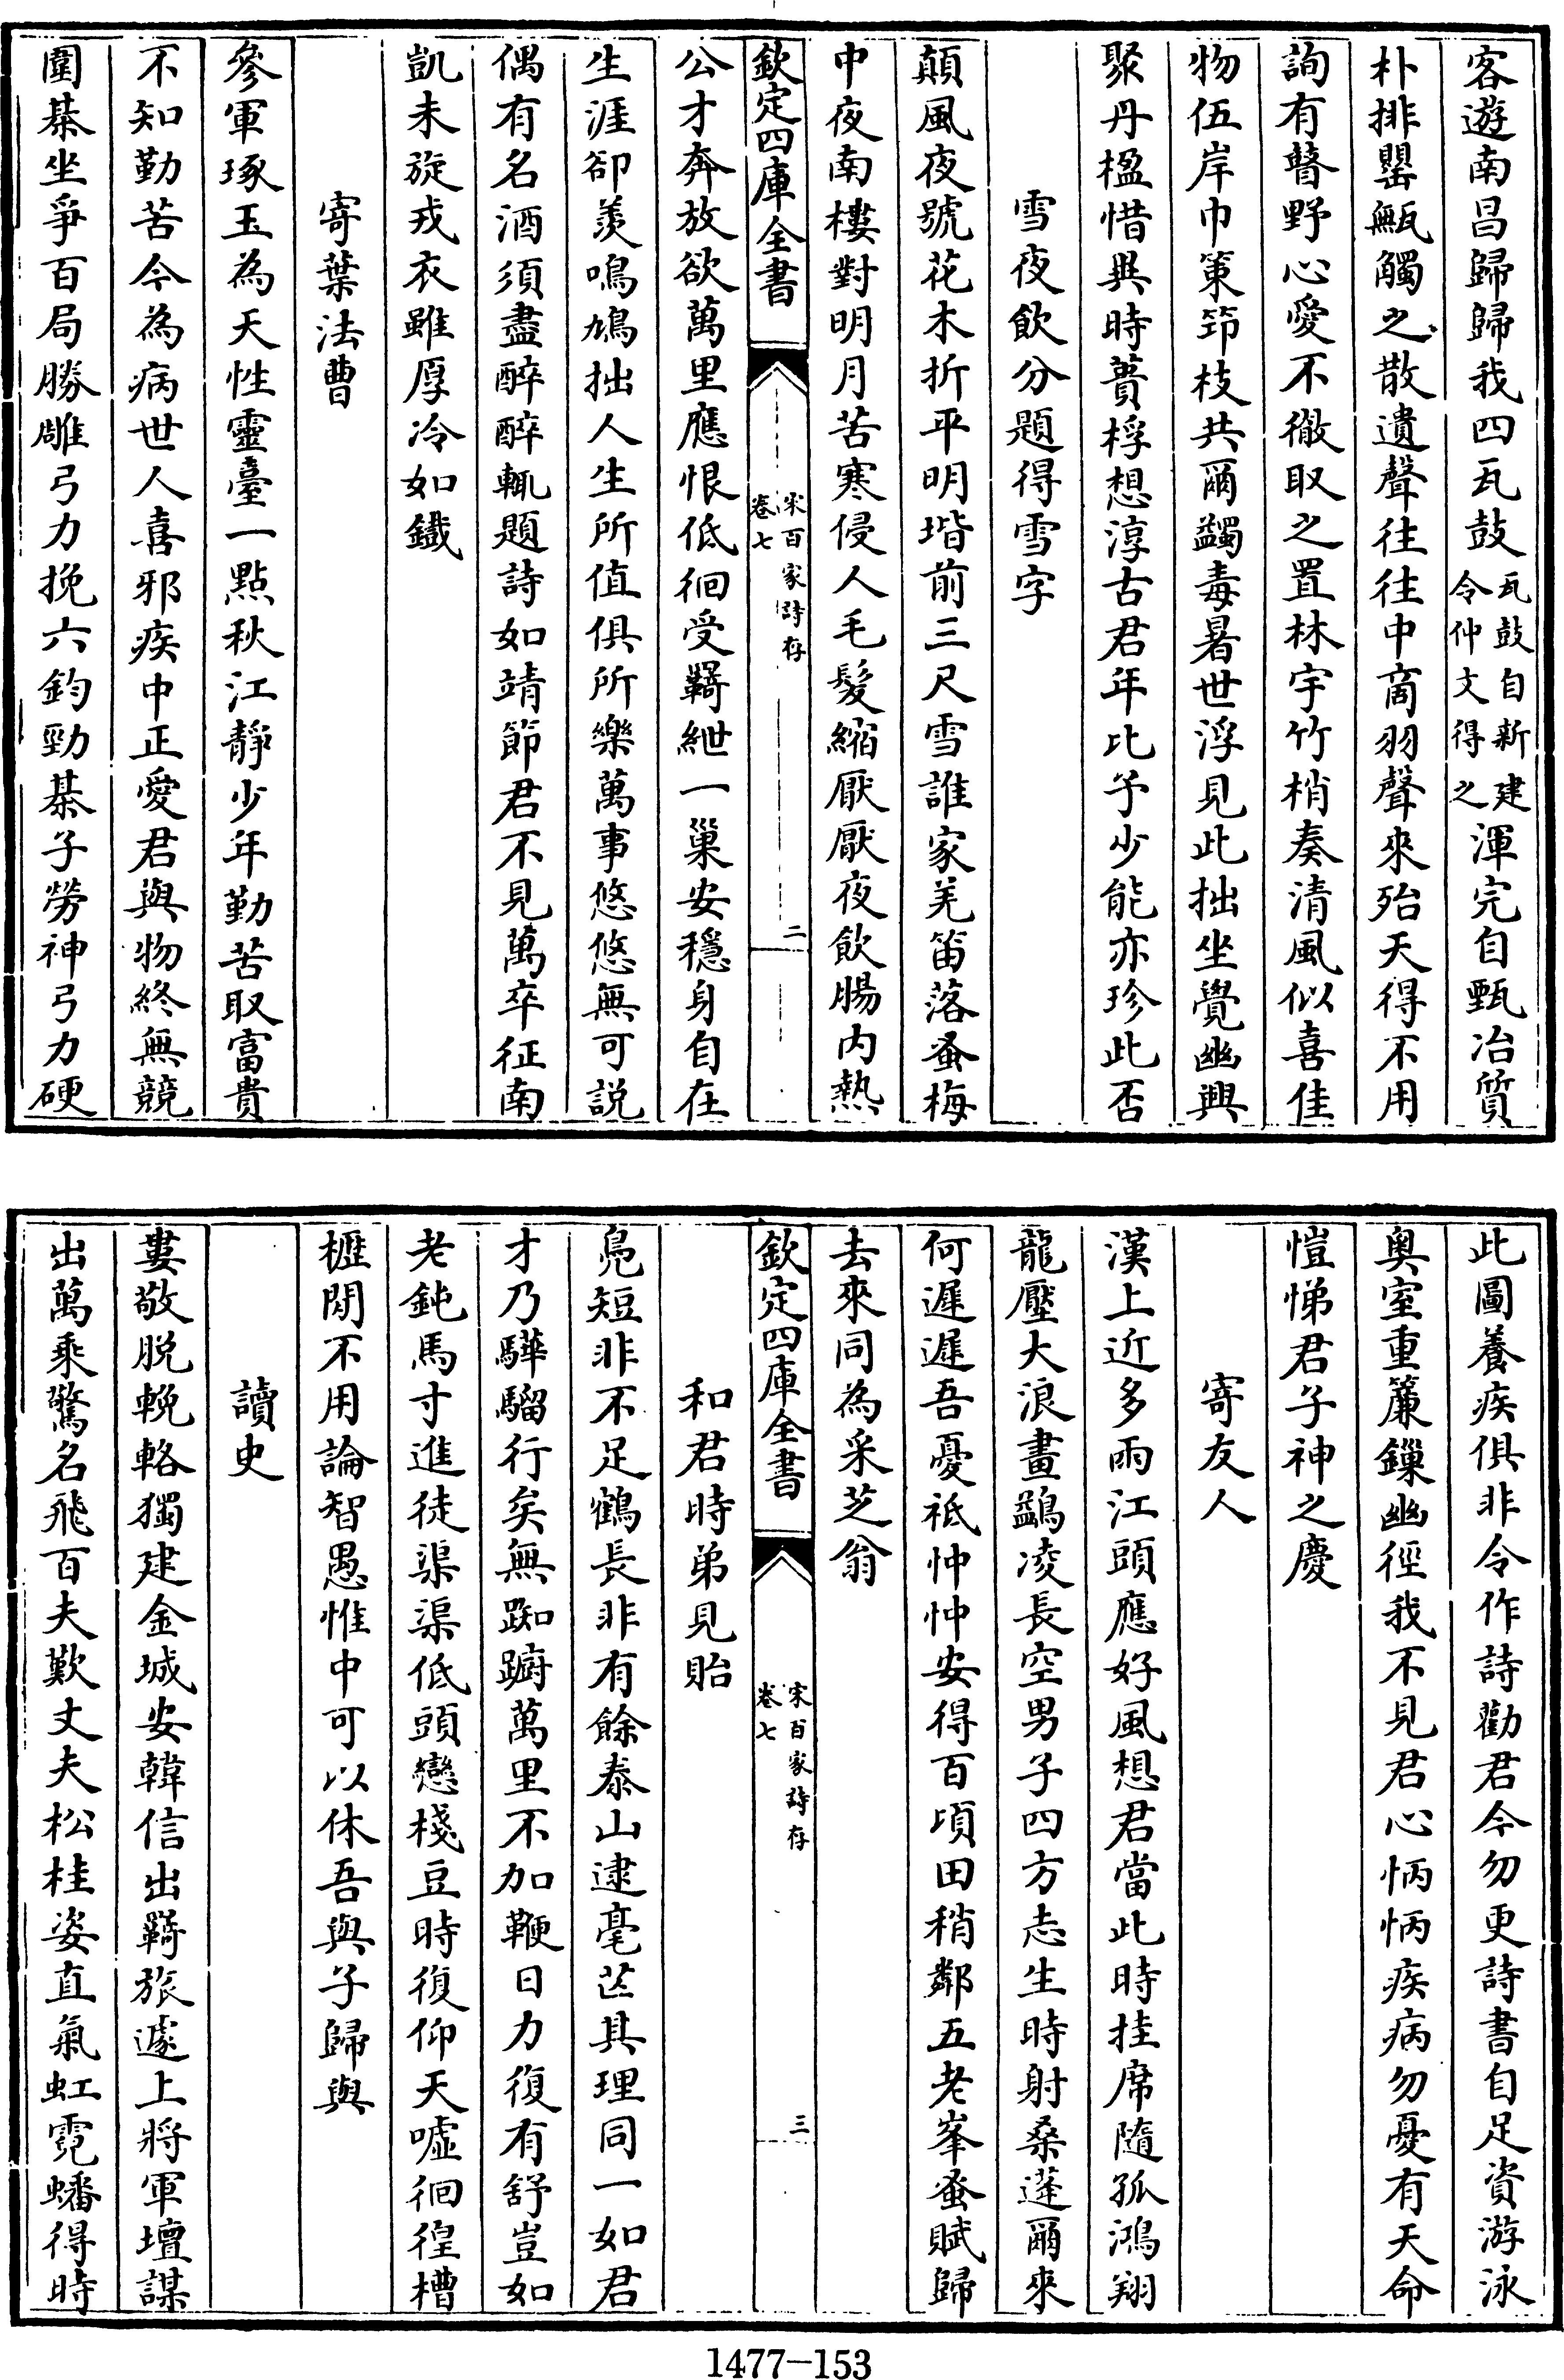 客遊南昌歸歸我四瓦鼓瓦鼓自新建令仲文得之渾完自甄冶質
朴排罌甒觸之散遺聲往往中商羽聲來殆天得不用
詢有瞽野心愛不徹取之置林宇竹梢奏清風似喜佳
物伍岸巾策笻枝共爾蠲毒暑世浮見此拙坐覺幽興
聚丹楹惜與時蕢桴想淳古君年比予少能亦珍此否
雪夜飲分題得雪字
顛風夜號花木折平明堦前三尺雪誰家羌笛落蚤梅
中夜南樓對明月苦寒侵人毛髮縮厭厭夜飲腸内熱
欽定四庫全書
宋百家詩存
卷七
二
公才奔放欲萬里應恨低徊受羇紲一巢安穩身自在
生涯卻羨鳴鳩拙人生所值俱所樂萬事悠悠無可説
偶有名酒須盡醉醉輒題詩如靖節君不見萬卒征南
凱未旋戎衣雖厚冷如鐡
寄葉法曹
參軍琢玉為天性靈臺一點秋江靜少年勤苦取富貴
不知勤苦今為病世人喜邪疾中正愛君與物終無競
圍棊坐爭百局勝雕弓力挽六鈞勁棊子勞神弓力硬
此圖養疾俱非令作詩勸君今勿更詩書自足資游泳
奥室重簾鏁幽徑我不見君心怲怲疾病勿憂有天命
愷悌君子神之慶
寄友人
漢上近多雨江頭應好風想君當此時挂席隨孤鴻翔
龍壓大浪畫鷁凌長空男子四方志生時射桑蓬爾來
何遲遲吾憂祗忡忡安得百頃田稍鄰五老峯蚤賦歸
去來同為采芝翁
欽定四庫全書
宋百家詩存
卷七
三
和君時弟見貽
鳧短非不足鶴長非有餘泰山逮毫芒其理同一如君
才乃驊騮行矣無踟躕萬里不加鞭日力復有舒豈如
老鈍馬寸進徒渠渠低頭戀棧豆時復仰天噓徊徨槽
櫪閒不用論智愚惟中可以休吾與子歸與
讀史
婁敬脱輓輅獨建金城安韓信出羇旅遽上將軍壇謀
出萬乘驚名飛百夫歎丈夫松桂姿直氣虹霓蟠得時
1477—153